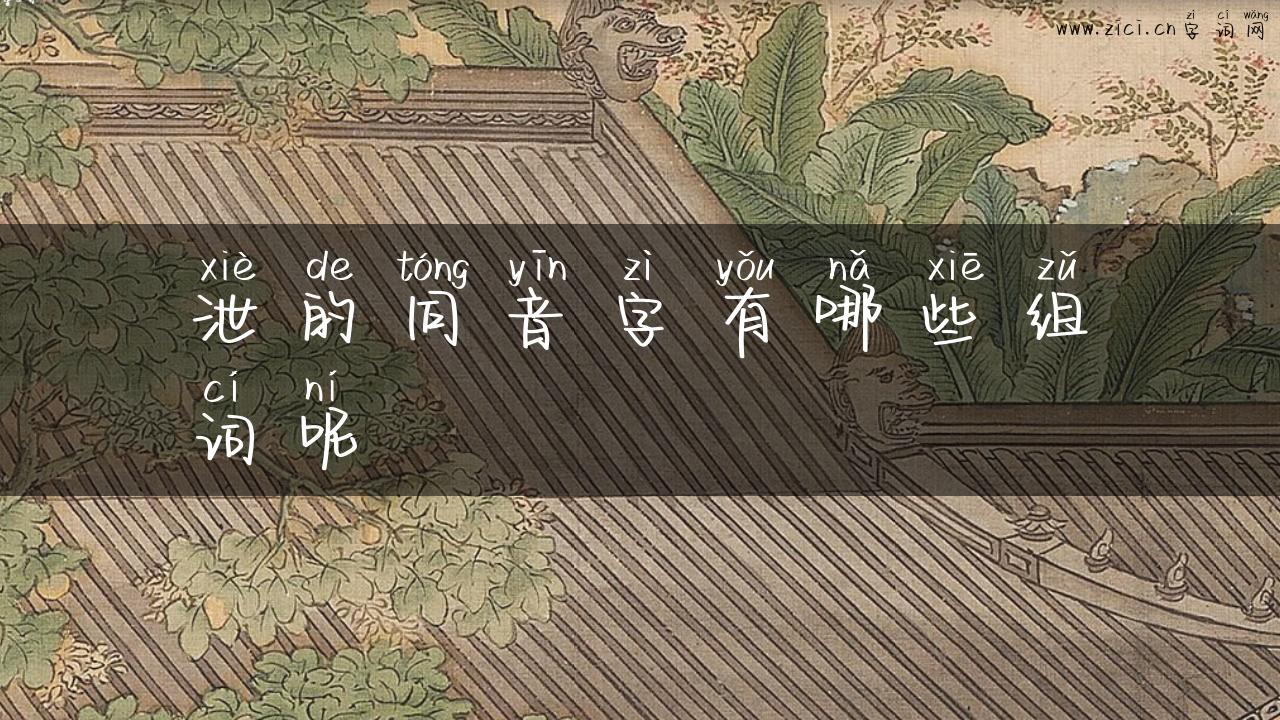 zì cí wǎng
www.zici.cn 字 词 网
xiè de tóng yīn zì yǒu nǎ xiē zǔ
泄 的 同 音 字 有 哪 些 组
cí ní
词 呢